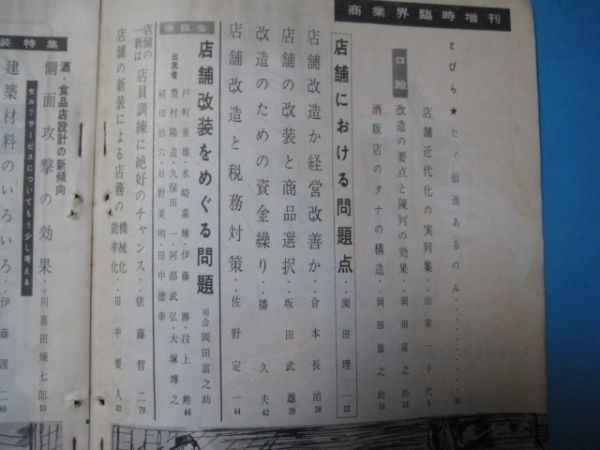 商業界臨時増刊
とびら★たゞ前進あるのみ‥‥‥22
口絵
店舗近代化の実例集‥山家一千代 5
改造の要点と陳列の効果‥岡田富之助 13
酒販店のタナの構造‥岡田富之助 16
店舗における問題点‥園田理一 22
店舗改造か経営改善か‥倉本長治 26
店舗の改装と商品選択‥坂田武雄 29
改造のための資金繰り‥播久夫 42
店舗改造と税務対策‥佐野定一 44
座談会
店舗改装をめぐる問題
司会 岡田富之助
出席者
戸町重雄・水崎嘉輝・伊藤勝・段上勲 46
豊村陽造・久保田一・阿部武弘・大塚博之
横田治六・日野美明・田中徳幸
店舗の一新は店員訓練に絶好のチャンス‥依藤哲二 79
店舗の新装による店務の機械化能率化‥田中要人 82
装特集
酒・食品店設計の新傾向
側面攻撃の効果‥川喜田煉七郎 53
セルフサービスについてもう少し考える
建築材料のいろいろ‥伊藤 二 60